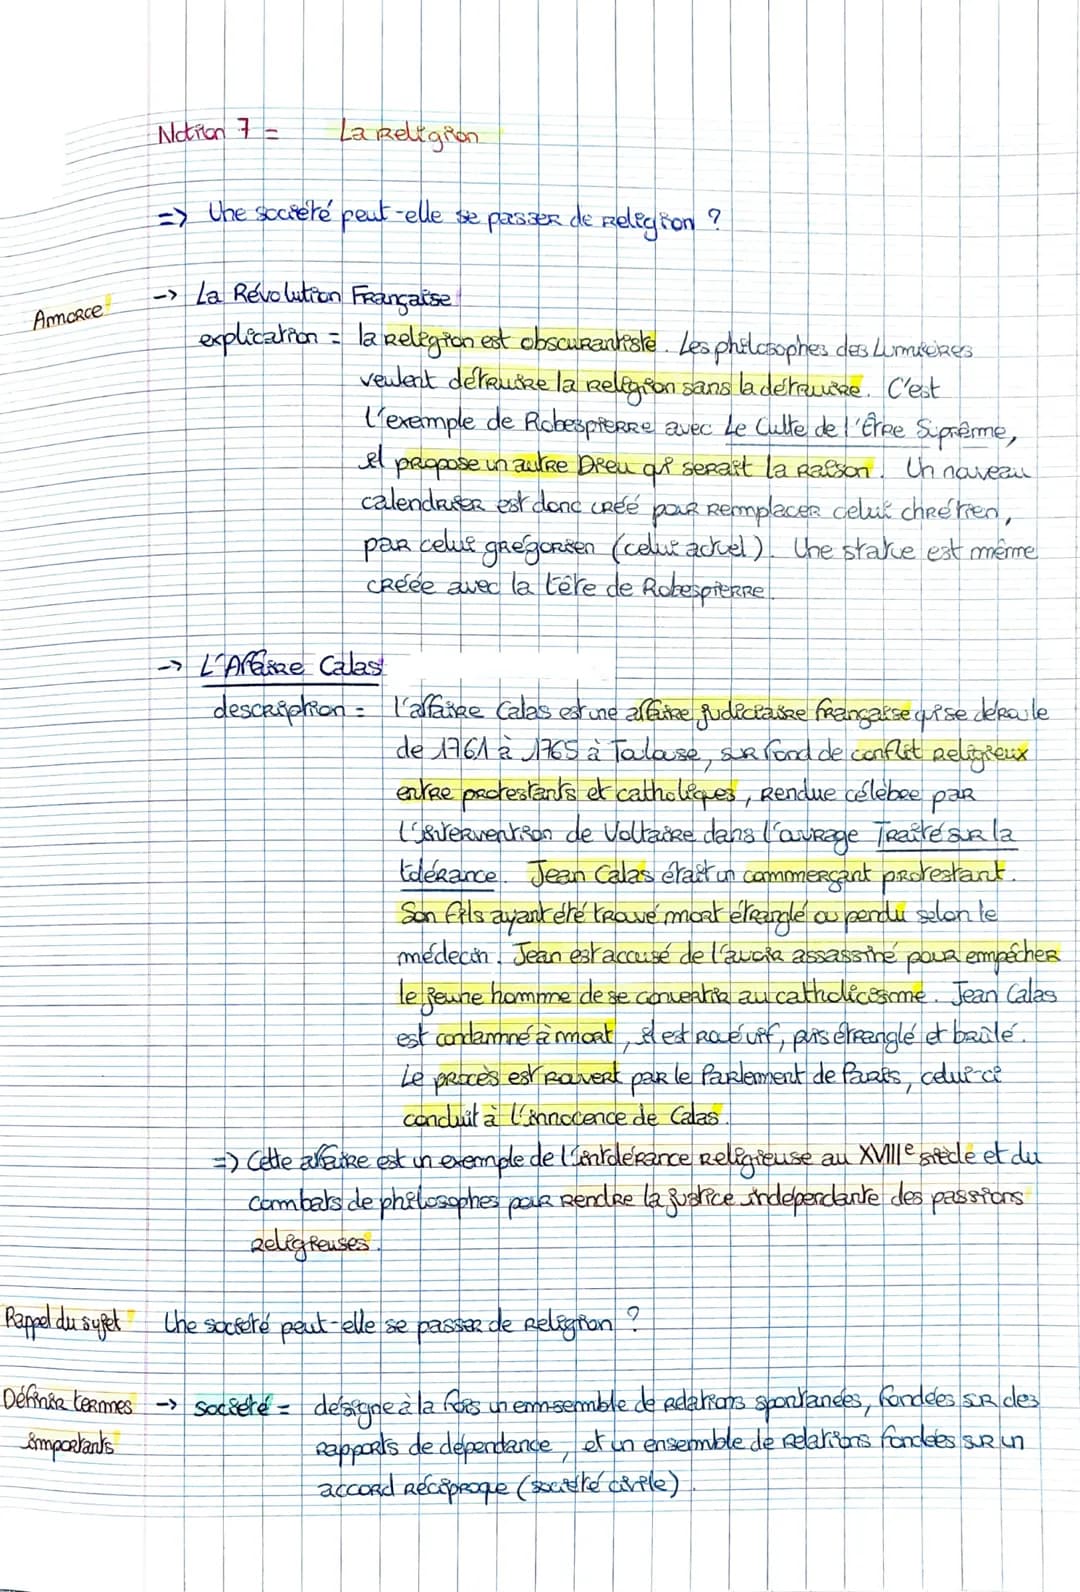 Notion 7 = La Religion
=> Une société peut-elle se passer de religion ?
Amorce
-> La Révolution Française
explication = la religion est obscurantiste. Les philosophes des Lumières
veulent détruire la religion sans la détruire. C'est
l'exemple de Robespierre avec Le Culte de l'Être Suprême,
il propose un autre Dieu qui serait la raison. Un nouveau
calendrier est donc créé pour remplacer celui chrétien,
par celui grégorien (celui actuel). Une statue est même
créée avec la tête de Robespierre.
-> L'Affaire Calas
description = l'affaire Calas est une affaire judiciaire française qui se déroule
de 1761 à 1765 à Toulouse, sur fond de conflit religieux
entre protestants et catholiques, rendue célèbre par
l'intervention de Voltaire dans l'ouvrage Traité sur la
tolérance. Jean Calas était un commerçant protestant.
Son fils ayant été trouvé mort étranglé ou pendu selon le
médecin. Jean est accusé de l'avoir assassiné pour empêcher
le jeune homme de se convertir au catholicisme. Jean Calas
est condamné à mort, il est roué vif, puis étranglé et brûlé.
Le procès est rouvert par le Parlement de Paris, celui-ci
conduit à l'innocence de Calas.
=> Cette affaire est un exemple de l'intolérance religieuse au XVIIIe siècle et du
combats de philosophes pour rendre la justice indépendante des passions
religieuses.
Rappel du sujet Une société peut-elle se passer de religion ?
Définir termes -> société = désigne à la fois un ensemble de relations spontanées, fondées sur des
importants rapports de dépendance, et un ensemble de relations fondées sur un
accord réciproque (société civile).